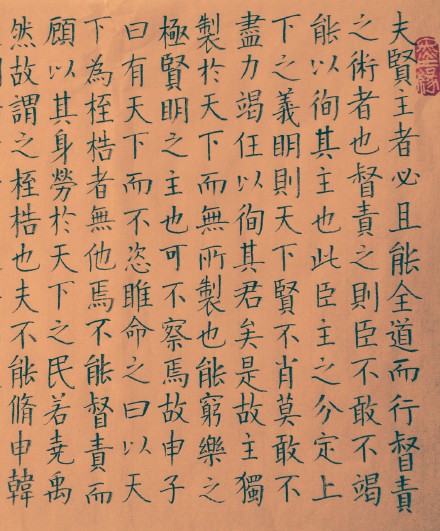 夫賢主者必且能全道而行督責
之術者也督責之則臣不敢不竭
能以徇其主也此臣主之分定上
下之義明則天下賢不肖莫敢不
盡力竭任以徇其君矣是故主獨
製於天下而無所製也能窮樂之
極賢明之主也可不察焉故申子
曰有天下而不恣睢命之曰以天
下為桎梏者無他焉不能督責而
顧以其身勞於天下之民若堯禹
然故謂之桎梏也夫不能脩申韓